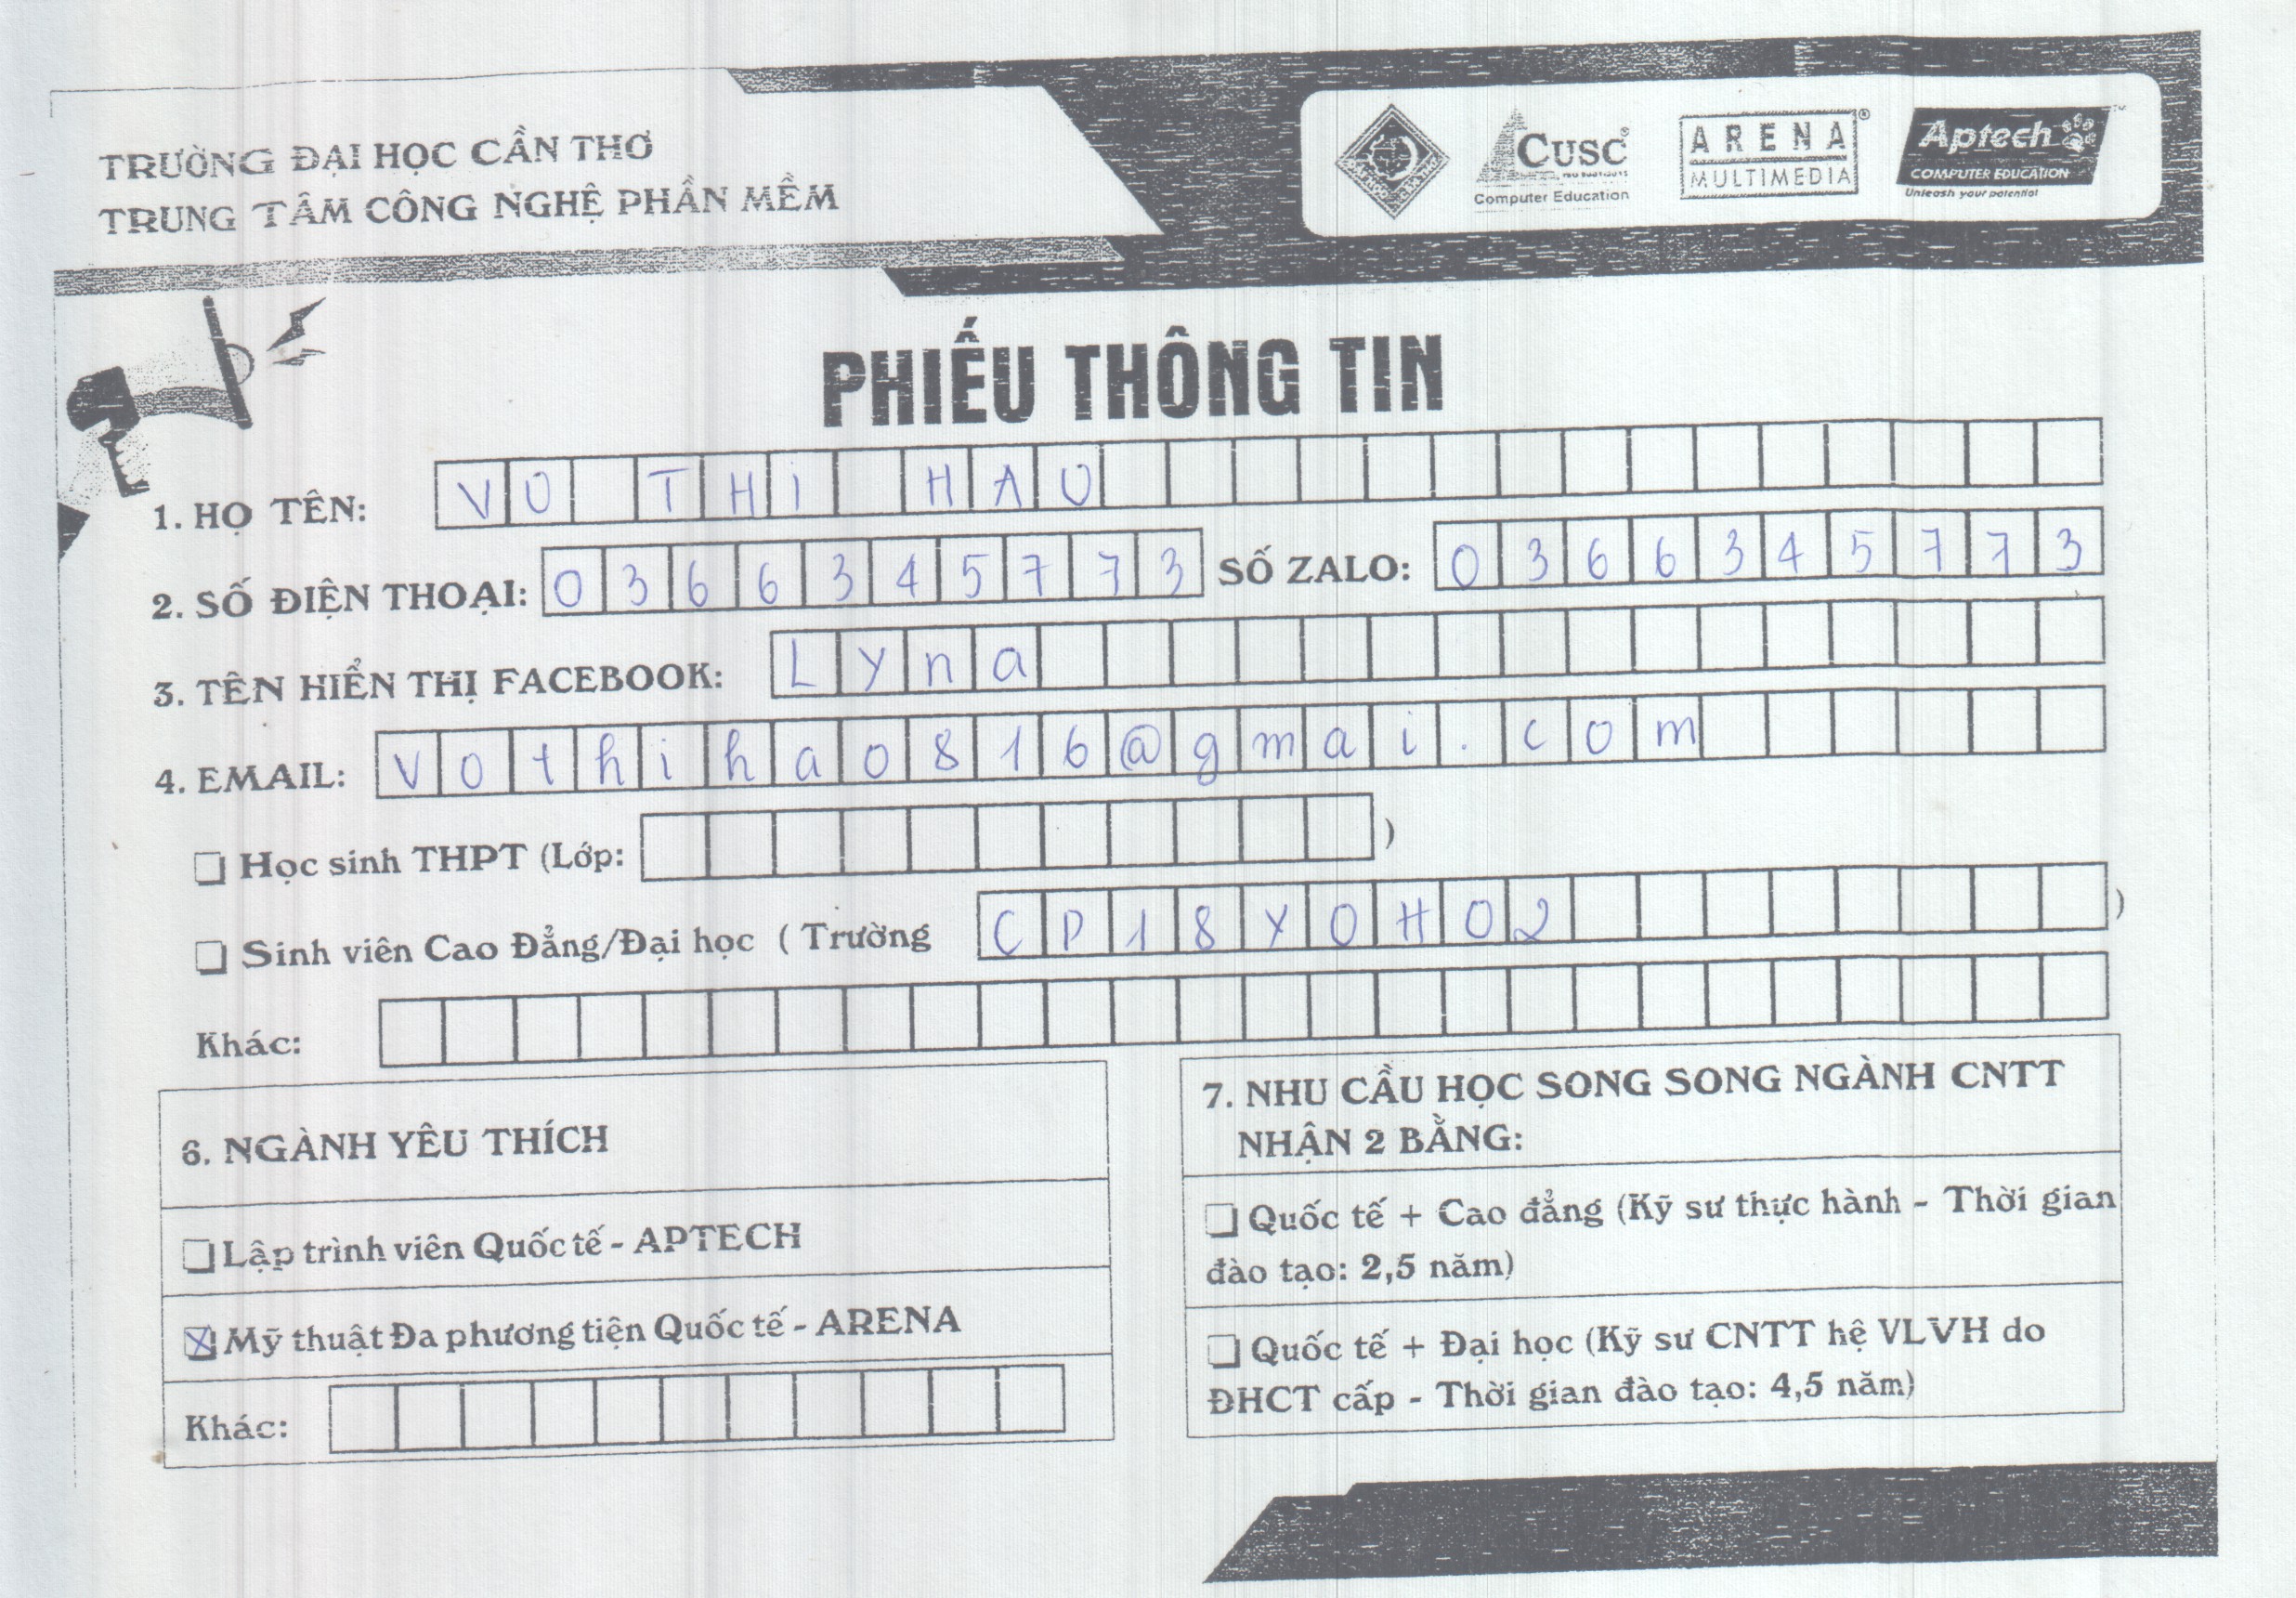 TRƯỜNG ĐẠI HỌC CẦN THƠ
TRUNG TÂM CÔNG NGHỆ PHẦN MỀM
CUSC®
Computer Education
ARENA®
MULTIMEDIA
Aptech™
COMPUTER EDUCATION
Unleash your potential
PHIẾU THÔNG TIN
1. HỌ TÊN: VO THI HAU
2. SỐ ĐIỆN THOẠI: 0366345773 SỐ ZALO: 0366345773
3. TÊN HIỂN THỊ FACEBOOK: Lyna
4. EMAIL: vothihao816@gmai.com
Học sinh THPT (Lớp: )
Sinh viên Cao Đẳng/Đại học ( Trường CP18X0H02 )
Khác:
6. NGÀNH YÊU THÍCH
Lập trình viên Quốc tế - APTECH
Mỹ thuật Đa phương tiện Quốc tế - ARENA
Khác:
7. NHU CẦU HỌC SONG SONG NGÀNH CNTT
NHẬN 2 BẰNG:
Quốc tế + Cao đẳng (Kỹ sư thực hành - Thời gian
đào tạo: 2,5 năm)
Quốc tế + Đại học (Kỹ sư CNTT hệ VLVH do
ĐHCT cấp - Thời gian đào tạo: 4,5 năm)